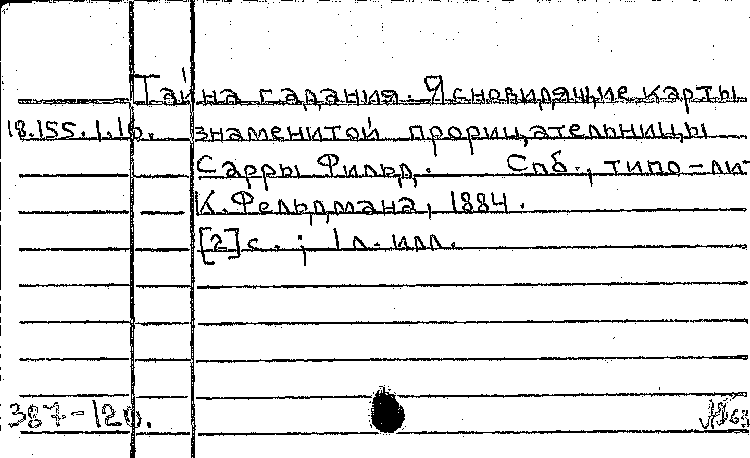 Тайна гадания. Ясновидящие карты
18.155.1.16. знаменитой прорицательницы
Сарры Фильд. Спб., типо-ли-
К. Фельдмана, 1884.
[2] с.; 1 л. илл.
387-120.